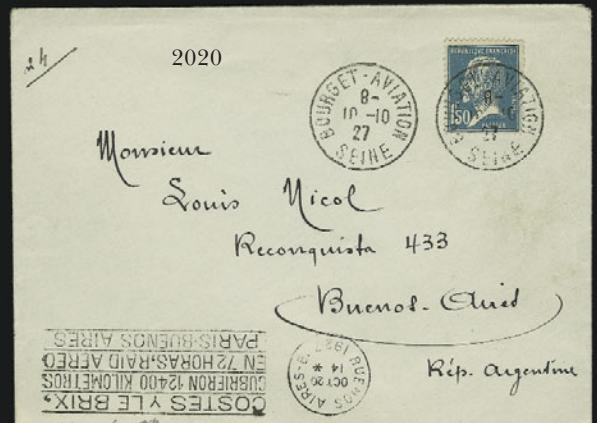 2020
24
BOURGET-AVIATION
8-
10-10
27
SEINE
REPUBLIQUE FRANÇAISE
1F50
AVIATION
8-
27
SEINE
Monsieur
Louis Nicol
Reconquista 433
Buenos-Aires
Rép. Argentine
COSTES Y LE BRIX,
CUBRIERON 12400 KILOMETROS
EN 72 HORAS, RAID AEREO
PARIS-BUENOS AIRES
BUENOS AIRES-B. 1927
OCT 20
14 *